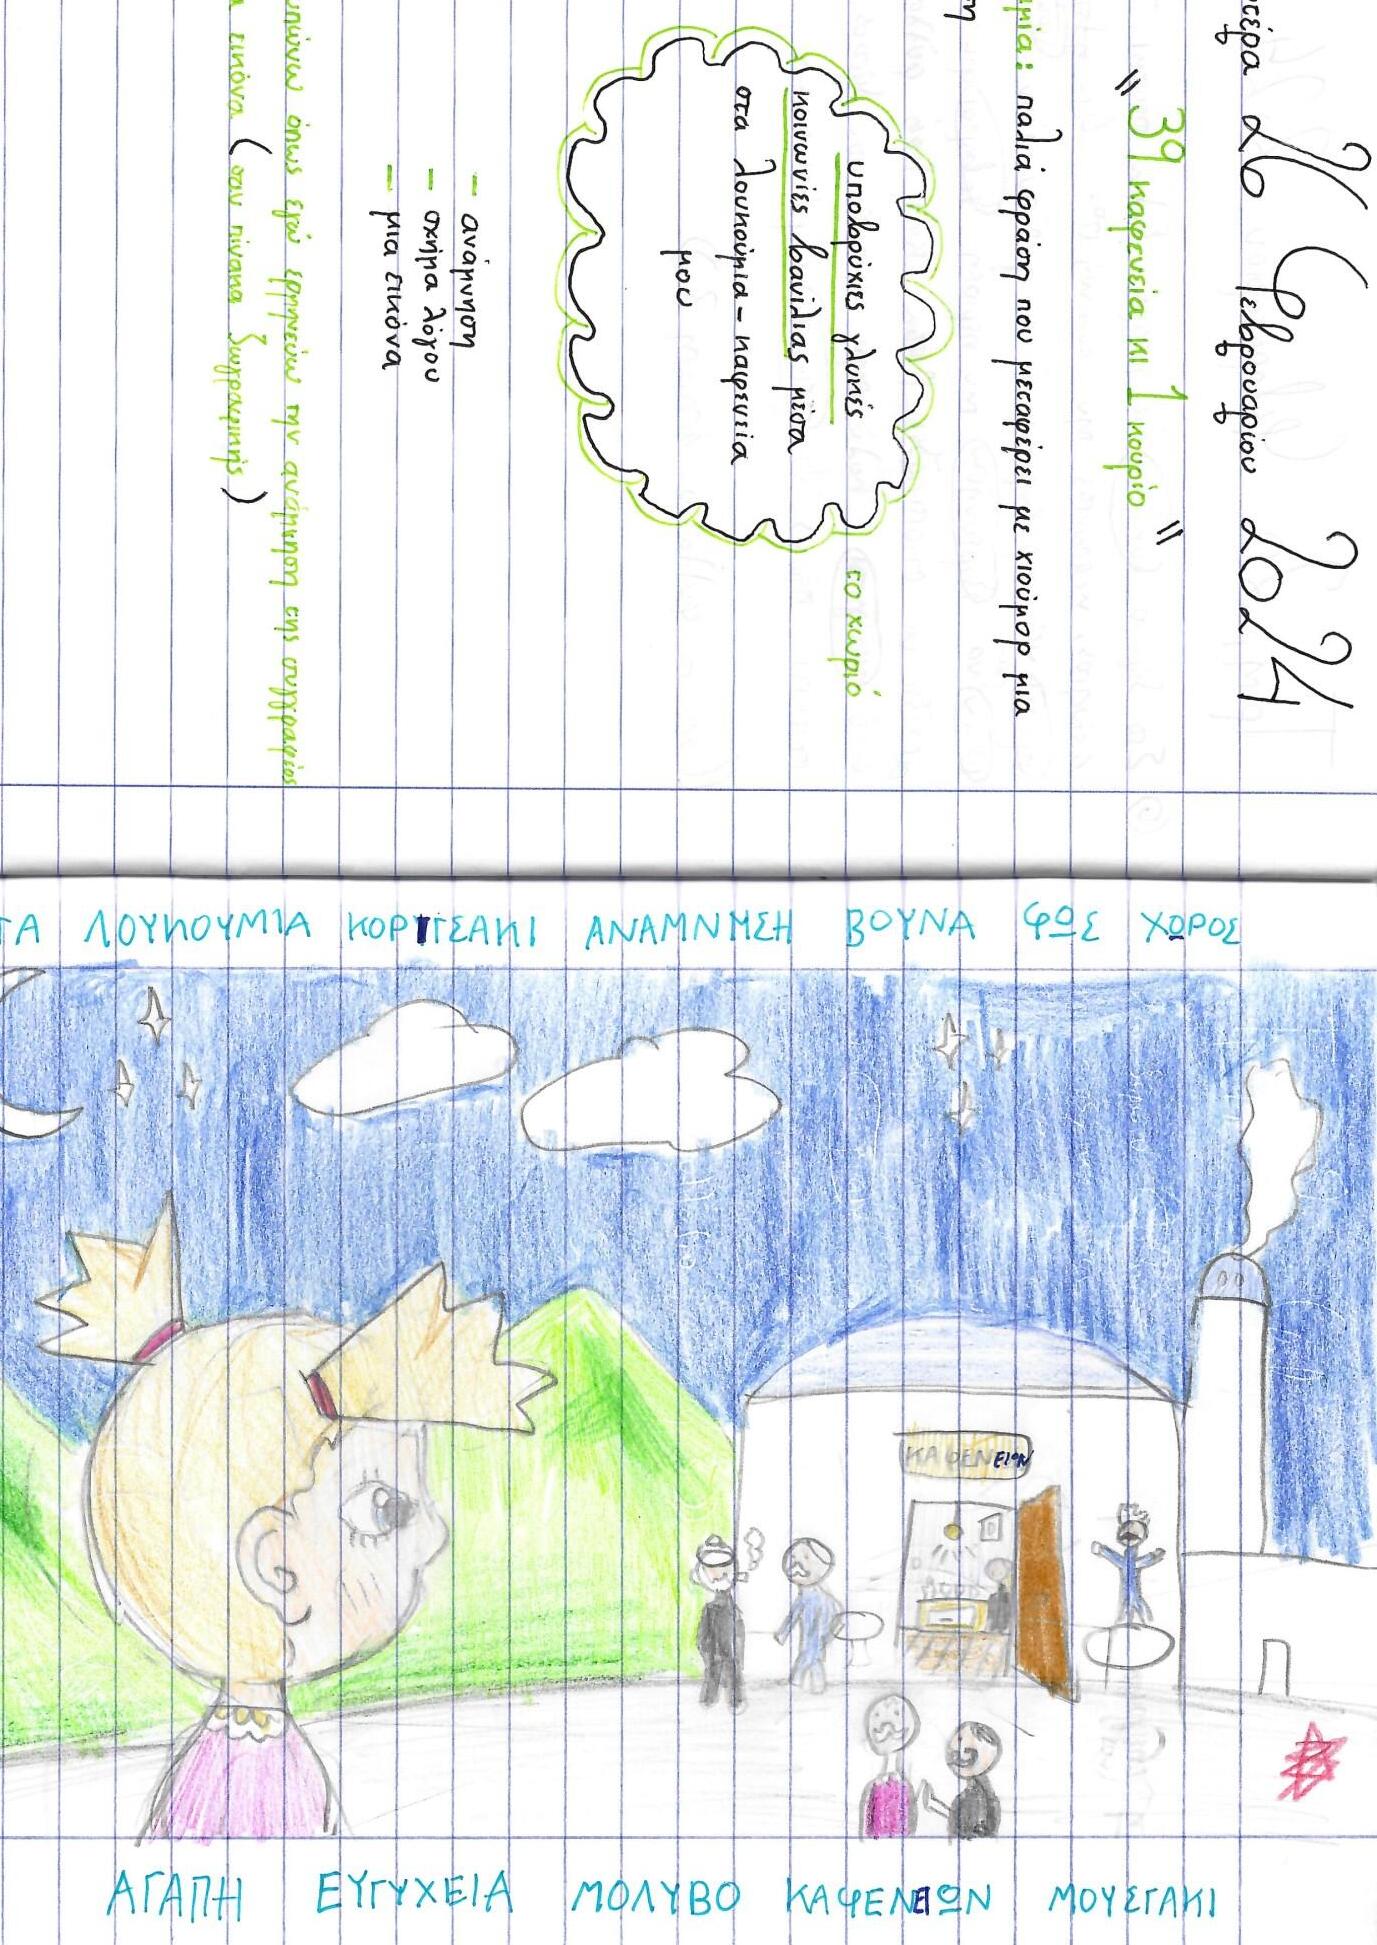 26 Φεβρουαρίου 2024
"39 καφενεία κι 1 κουρίο"
παλιά φράση που μεταφέρει με χιούμορ μια
το χωριό
υποβρύχιες γλυκές
κοινωνίες βανίλιας μέσα
στα λουκούμια - καφενεία
μου
- ανάμνηση
- σχήμα λόγου
- μια εικόνα
όπως εγώ ερμηνεύω την ανάμνηση της συγγραφέας
εικόνα (σαν πίνακα ζωγραφικής)
ΛΟΥΚΟΥΜΙΑ ΚΟΡΙΤΣΑΚΙ ΑΝΑΜΝΗΣΗ ΒΟΥΝΑ ΦΩΣ ΧΩΡΟΣ
ΚΑΦΕΝΕΙΩΝ
ΑΓΑΠΗ ΕΥΤΥΧΕΙΑ ΜΟΛΥΒΟ ΚΑΦΕΝΕΙΩΝ ΜΟΥΣΤΑΚΙ